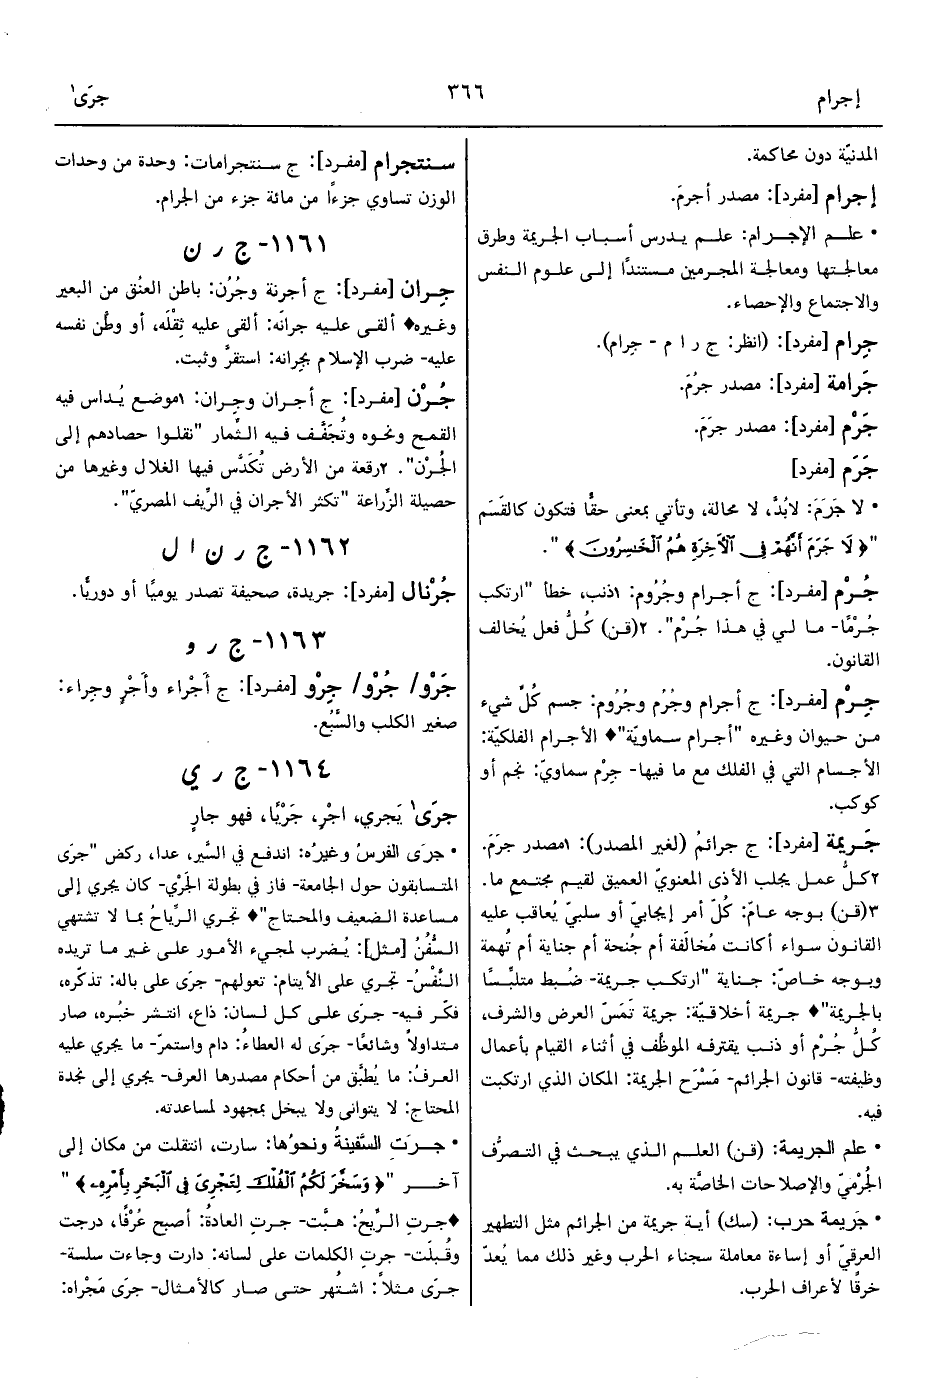 إجرام
٣٦٦
جرَى١
المدنيّة دون محاكمة.
إجرام [مفرد]: مصدر أجرمَ.
• علم الإجرام: علم يدرس أسباب الجريمة وطرق
معالجتها ومعالجة المجرمين مستندًا إلى علوم النفس
والاجتماع والإحصاء.
جِرام [مفرد]: (انظر: ج ر ا م - جرام).
جَرامة [مفرد]: مصدر جرُمَ.
جَرْم [مفرد]: مصدر جرَمَ.
جَرَم [مفرد]
• لا جَرَمَ: لابُدَّ، لا محالة، وتأتي بمعنى حقًّا فتكون كالقَسَم
"﴿ لَا جَرَمَ أَنَّهُمْ فِي الْآخِرَةِ هُمُ الْخَسِرُونَ ﴾".
جُرْم [مفرد]: ج أجرام وجُرُوم: ١ذنب، خطأ "ارتكب
جُرْمًا- ما لي في هذا جُرْم". ٢(قن) كُلُّ فعل يُخالف
القانون.
جِرْم [مفرد]: ج أجرام وجُرُم وجُرُوم: جسم كُلّ شيء
من حيوان وغيره "أجرام سماوية"♦ الأجرام الفلكيّة:
الأجسام التي في الفلك مع ما فيها- جِرْم سماويّ: نجم أو
كوكب.
جَريمة [مفرد]: ج جرائمُ (لغير المصدر): ١مصدر جرَمَ.
٢كلُّ عمل يجلب الأذى المعنويّ العميق لقيم مجتمع ما.
٣(قن) بوجه عامّ: كُلّ أمر إيجابيّ أو سلبيّ يُعاقب عليه
القانون سواء أكانت مُخالَفة أم جُنحة أم جناية أم تُهمة
وبوجه خاصّ: جناية "ارتكب جريمة- ضُبط متلبِّسًا
بالجريمة"♦ جريمة أخلاقيّة: جريمة تَمَسّ العرض والشرف،
كُلُّ جُرْم أو ذنب يقترفه الموظّف في أثناء القيام بأعمال
وظيفته- قانون الجرائم- مَسْرَح الجريمة: المكان الذي ارتكبت
فيه.
• علم الجريمة: (قن) العلم الذي يبحث في التصرُّف
الجُرْميّ والإصلاحات الخاصَّة به.
• جَريمة حرب: (سك) أية جريمة من الجرائم مثل التطهير
العرقيّ أو إساءة معاملة سجناء الحرب وغير ذلك مما يُعدّ
خرقًا لأعراف الحرب.
سنتجرام [مفرد]: ج سنتجرامات: وحدة من وحدات
الوزن تساوي جزءًا من مائة جزء من الجرام.
١١٦١- ج ر ن
جِران [مفرد]: ج أجرنة وجُرُن: باطن العنُق من البعير
وغيره♦ ألقى عليه جرانَه: ألقى عليه ثِقْلَه، أو وطّن نفسه
عليه- ضرب الإسلام بجرانه: استقرَّ وثبت.
جُرْن [مفرد]: ج أجران وجِران: ١موضع يُداس فيه
القمح ونحوه وتُجَفَّف فيه الثِّمار "نقلوا حصادهم إلى
الجُرْن". ٢رقعة من الأرض تُكَدَّس فيها الغلال وغيرها من
حصيلة الزِّراعة "تكثر الأجران في الرِّيف المصريّ".
١١٦٢- ج ر ن ا ل
جُرْنال [مفرد]: جريدة، صحيفة تصدر يوميًّا أو دوريًّا.
١١٦٣- ج ر و
جَرْو/ جُرْو/ جِرْو [مفرد]: ج أَجْراء وأَجْرٍ وجِراء:
صغير الكلب والسَّبُع.
١١٦٤- ج ر ي
جرَى١ يَجري، اجْرِ، جَرْيًا، فهو جارٍ
• جرَى الفرسُ وغيرُه: اندفع في السَّير، عدا، ركض "جرَى
المتسابقون حول الجامعة- فاز في بطولة الجَرْي- كان يجري إلى
مساعدة الضعيف والمحتاج"♦ تجري الرِّياحُ بما لا تشتهي
السُّفُنُ [مثل]: يُضرب لمجيء الأمور على غير ما تريده
النَّفْسُ- تجري على الأيتام: تعولهم- جرَى على باله: تذكّره،
فكّر فيه- جرَى على كل لسان: ذاع، انتشر خبُره، صار
متداولاً وشائعًا- جرَى له العطاءُ: دام واستمرّ- ما يجري عليه
العرفُ: ما يُطبَّق من أحكام مصدرها العرف- يجري إلى نجدة
المحتاج: لا يتوانى ولا يبخل بمجهود لمساعدته.
• جرَتِ السَّفينةُ ونحوُها: سارت، انتقلت من مكان إلى
آخر "﴿ وَسَخَّرَ لَكُمُ الْفُلْكَ لِتَجْرِيَ فِي الْبَحْرِ بِأَمْرِهِ ﴾"
♦جرتِ الرِّيحُ: هبَّت- جرتِ العادةُ: أصبح عُرْفًا، درجت
وقُبلَت- جرتِ الكلمات على لسانه: دارت وجاءت سلسة-
جرَى مثلاً: اشتُهر حتى صار كالأمثال- جرَى مَجْراه: